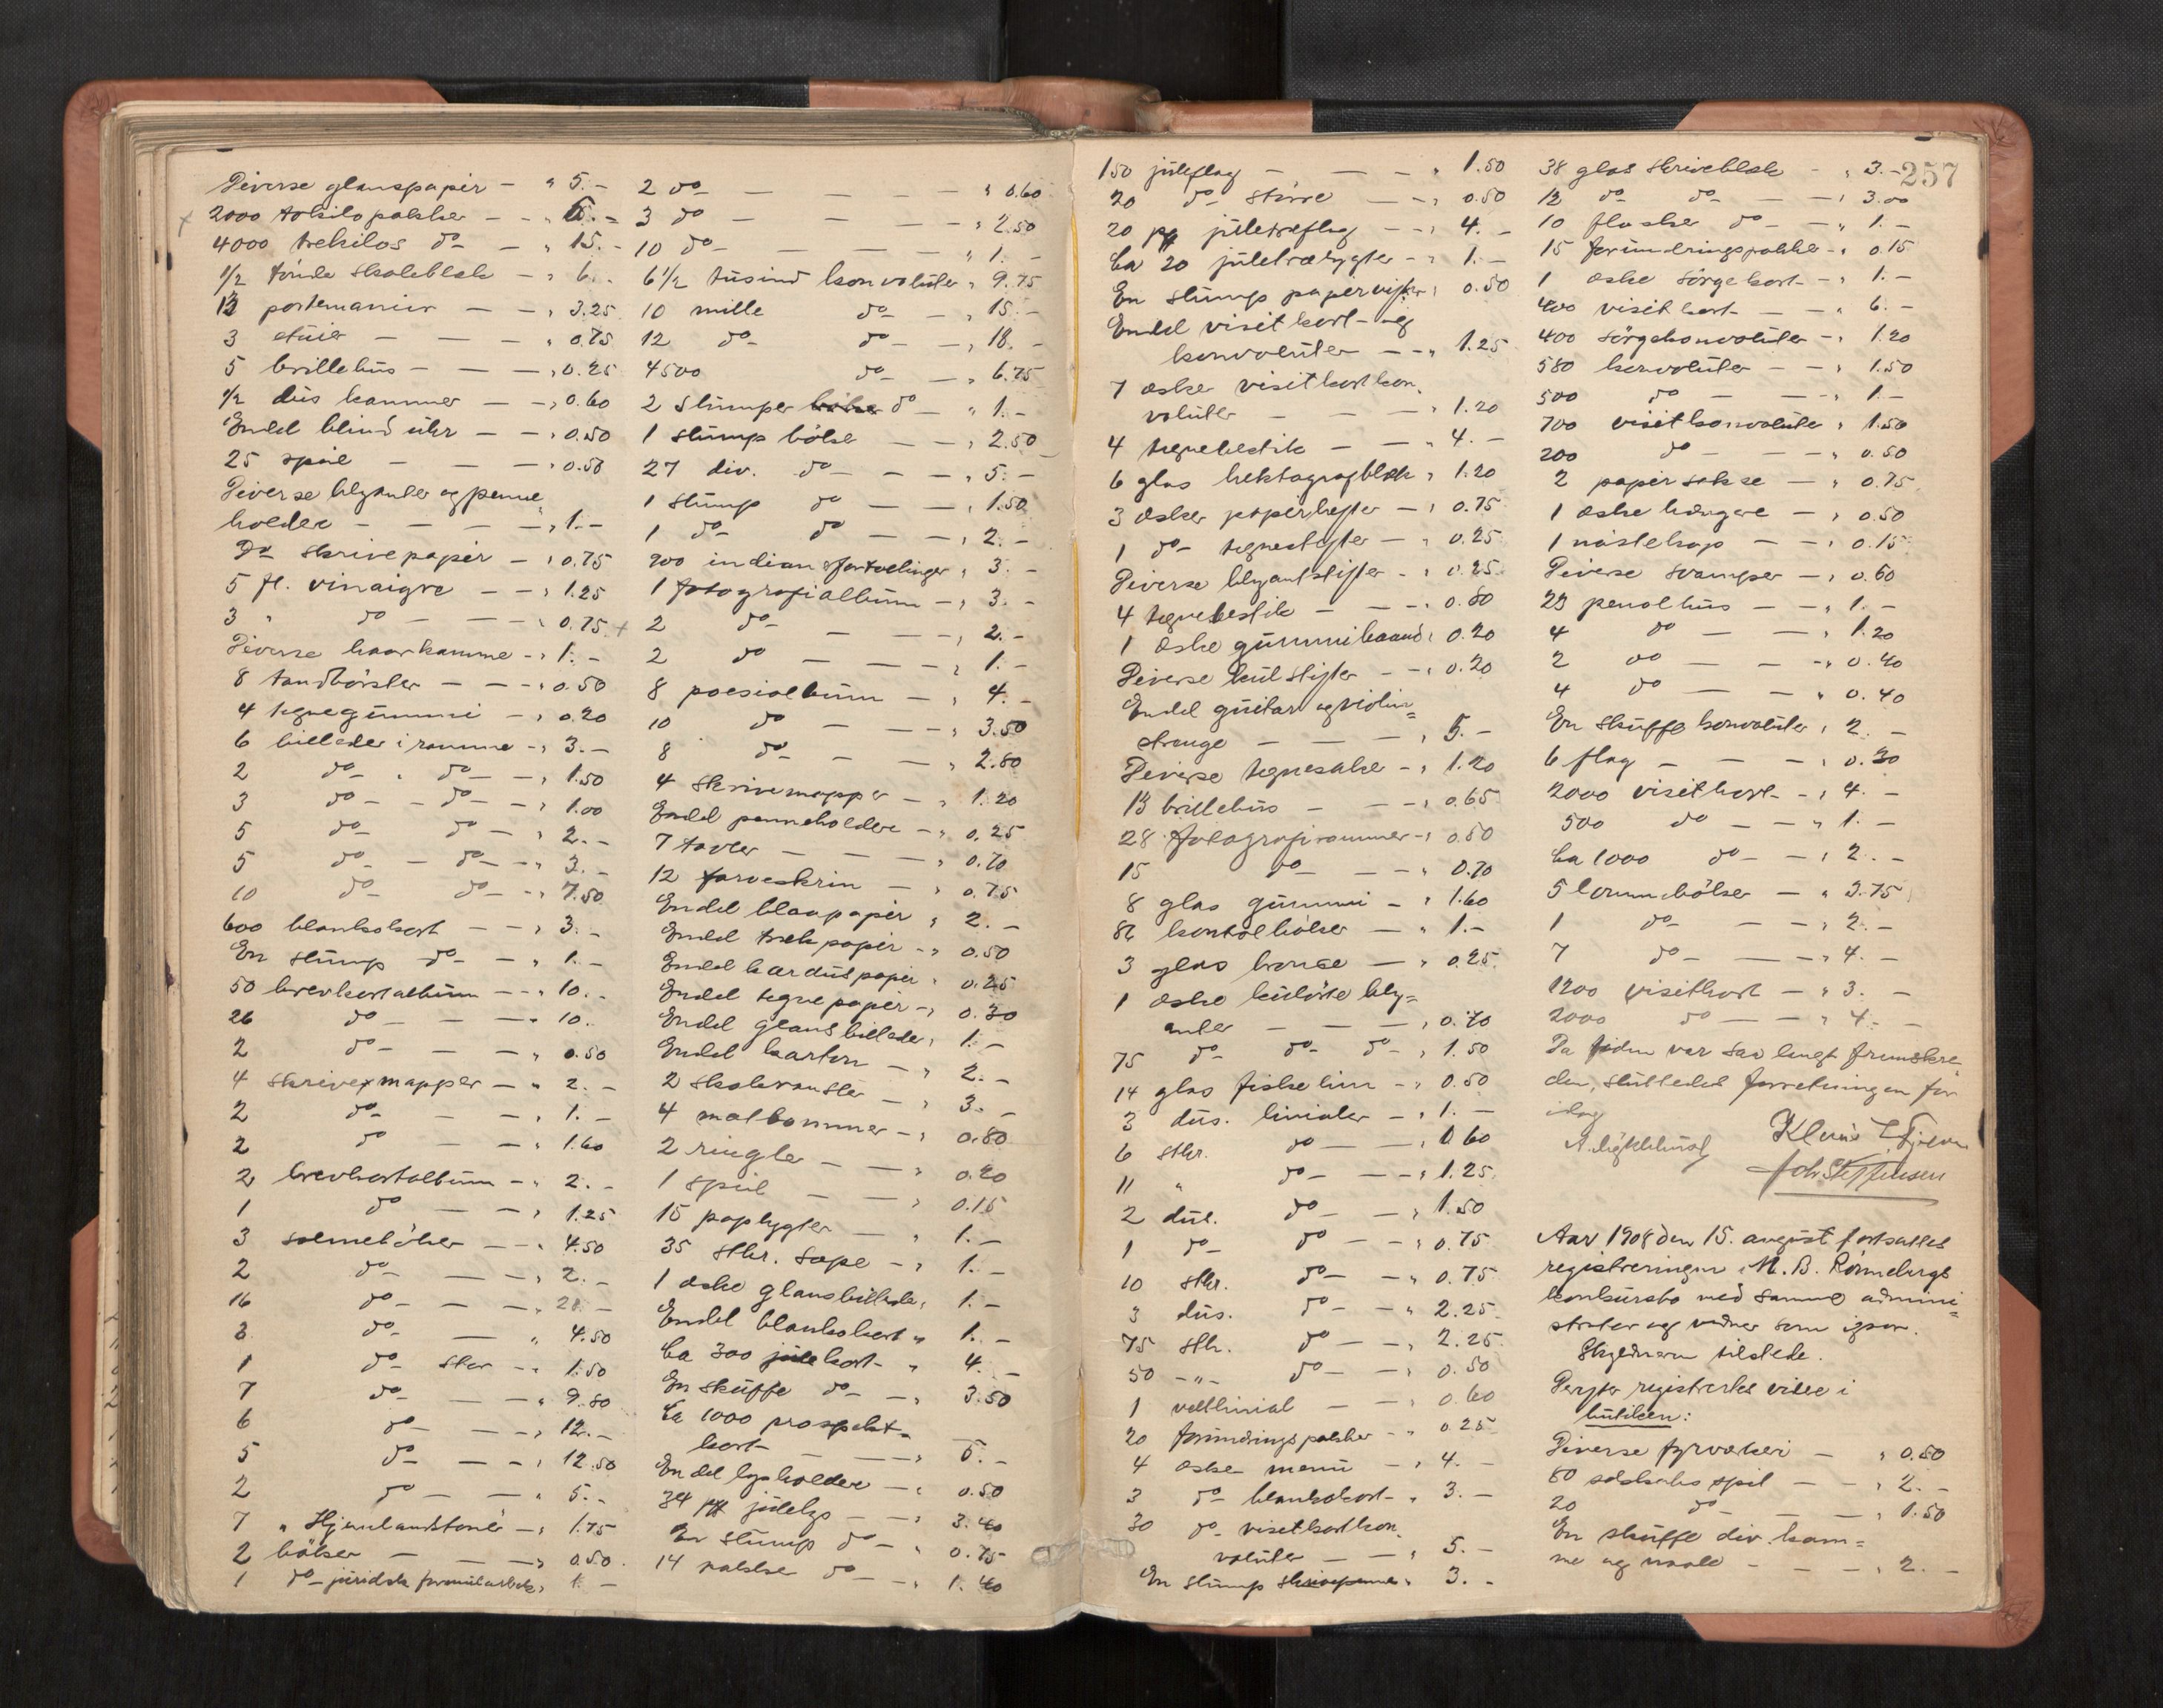 Diverse glanspapir - " 5.-
2000 tokilo pakker - - " 6.-
4000 trekilos do - " 15.-
1/2 tönde skoleblæk - " 6.-
13 portemonnier - - " 3.25
3 etuier - - - " 0.75
5 brillehus - - - " 0.25
1/2 dus kammer - - " 0.60
Endel blind uhr - - " 0.50
25 speil - - - " 0.50
Diverse blyanter og penne
holdere - - - - " 1.-
Do skrivepapir - " 0.75
5 fl. vinaigre - - " 1.25
3 " do - - - " 0.75
Diverse haarkamme - " 1.-
8 tandbörster - - - " 0.50
4 tegnegummi - " 0.20
6 billeder i ramme - " 3.-
2 do - " do - - " 1.50
3 do - - do - - " 1.00
5 do do - " 2.-
5 do - do - - " 3.-
10 do do - - " 7.50
600 blankokort - - " 3.-
En stump do - - " 1.-
50 brevkortalbum - - " 10.-
26 do - - - " 10.
2 do - - - " 0.50
4 skrivemapper - " 2.-
2 do - - - " 1.-
2 do - - " 1.60
2 brevkortalbum - " 2.-
1 do - - " 1.25
3 salmebøker - - " 4.50
2 do - - - " 2.-
16 do - - - " 28.-
3 do - - " 4.50
1 do - stor - " 1.50
7 do - - - " 9.80
6 do - - - " 12.-
5 do - - - " 12.50
2 do - - " 5.-
7 " Hjemlandstoner - " 1.75
2 bøker - - - " 0.50
1 do - juridisk formularbok " 1.-
2 do - - - - " 0.60
3 do - - - " 2.50
10 do - - - " 1.-
6 1/2 tusind konvoluter " 9.75
10 mille do - - " 15.-
12 do - do - - " 18.-
4500 do - - " 6.75
2 stumper do - " 1.-
1 stump bøker - - " 2.50
27 div. do - - - " 5.-
1 stump do - - " 1.50
1 do - do - - " 2.-
200 indianerfortællinger " 3.-
1 fotografialbum - " 3.-
2 do - - - - " 2.-
2 do - - - " 1.-
8 poesialbum - " 4.-
10 do - - - " 3.50
8 do - - - " 2.80
4 skrivemapper - " 1.20
Endel penneholdere - " 0.25
7 tavler - - - " 0.70
12 farveskrin - " 0.75
Endel blaapapir " 2.-
Endel trækpapir - " 0.50
Endel karduspapir " 0.25
Endel tegnepapir - " 0.30
Endel glansbilleder " 1.-
Endel karton - " 2.-
2 skoleransler - " 3.-
4 malbommer - " 0.80
2 ringle - - " 0.20
1 speil - - " 0.15
15 paplygter - " 1.-
35 stkr. sæpe - " 1.-
1 æske glansbilleder " 1.-
Endel blankokort " 1.-
Ca 300 julekort - " 4.-
En skuffe do - - " 3.50
Ca 1000 prospekt-
kort - - - " 5.-
En del lysholdere - " 0.50
34 pk julelys - - " 3.40
En stump do - " 0.75
14 pakker do - - " 1.40
150 juleflag - - - " 1.50
20 do större - - " 0.50
20 pk juletreflag - - " 4.-
Ca 20 juletrælygter - " 1.-
En stump papirvifter " 0.50
Endel visitkort- og
konvoluter - - " 1.25
7 æsker visitkortkon
voluter - - - " 1.20
4 tegnebestik - - " 4.-
6 glas hektografblæk " 1.20
3 æsker papirhefter - " 0.75
1 do - tegnestifter - " 0.25
Diverse blyantstifter - " 0.25
4 tegnebestik - - - " 0.80
1 æske gummibaand " 0.20
Diverse kulstifter - - " 0.20
Endel guitar og violin=
strenge - - - " 5.-
Diverse tegnesaker - " 1.20
13 brillehus - - - " 0.65
28 fotografirammer - " 0.50
15 do - - - " 0.70
8 glas gummi - " 1.60
86 kontobøker - " 1.-
3 glas bronse - " 0.25
1 æske kulörte bly=
anter - - - " 0.70
75 do - do - do - " 1.50
14 glas fiskelim - " 0.50
3 dus. linialer - " 1.-
6 stkr. do - - " 0.60
11 " do - - - " 1.25
2 dus. do - - " 1.50
1 do - do - - " 0.75
10 stkr. do - - " 0.75
3 dus. do - - " 2.25
75 stk. do - - " 2.25
50 -"- do - - " 0.50
1 - - " 0.60
20 forundringspakker - " 0.25
4 æsker menu - " 4.-
3 do - blankokort - " 3.-
30 do - visitkortkon
voluter - - " 5.-
En stump " 3.-
257
38 glas skriveblæk - " 3.-
12 do do - - " 3.00
10 flasker do - - " 1.-
15 forundringspakker - " 0.15
1 æske sörgekort - " 1.-
400 visitkort - - " 6.-
400 sörgekonvoluter - " 1.20
580 konvoluter - - " 1.50
500 do - - - " 1.-
700 visitkonvoluter " 1.50
200 do - - - " 0.50
2 papirsakse - " 0.75
1 æske hængere - " 0.50
1 - - " 0.15
Diverse svamper - " 0.60
29 penalhus - - " 1.-
4 do - - " 1.20
2 do - - - " 0.40
4 do - - " 0.40
En skuffe konvoluter " 2.-
6 flag - - - " 0.30
2000 visitkort - - " 4.-
500 do - - " 1.-
Ca 1000 do - - " 2.-
5 lommebøker - " 3.75
1 do - - - " 2.-
7 do - - - " 4.-
1200 visitkort - " 3.-
2000 do - - - " 4.-
Da tiden var saa langt fremskre-
den, sluttedes forretningen for
idag
A. Lykkehus
Joh. Steffensen
Aar 1908 den 15. august fortsattes
registreringen i M. B. Rönnebergs
konkursbo med samme admini=
strator og vidner som igaar.
Skyldneren tilstede.
Derefter registrertes videre i
butiken:
Diverse fyrverkeri - " 0.50
80 selskabsspil - - " 2.-
20 do - - - " 1.50
En skuffe div. kam=
me og naale - - - " 2.-